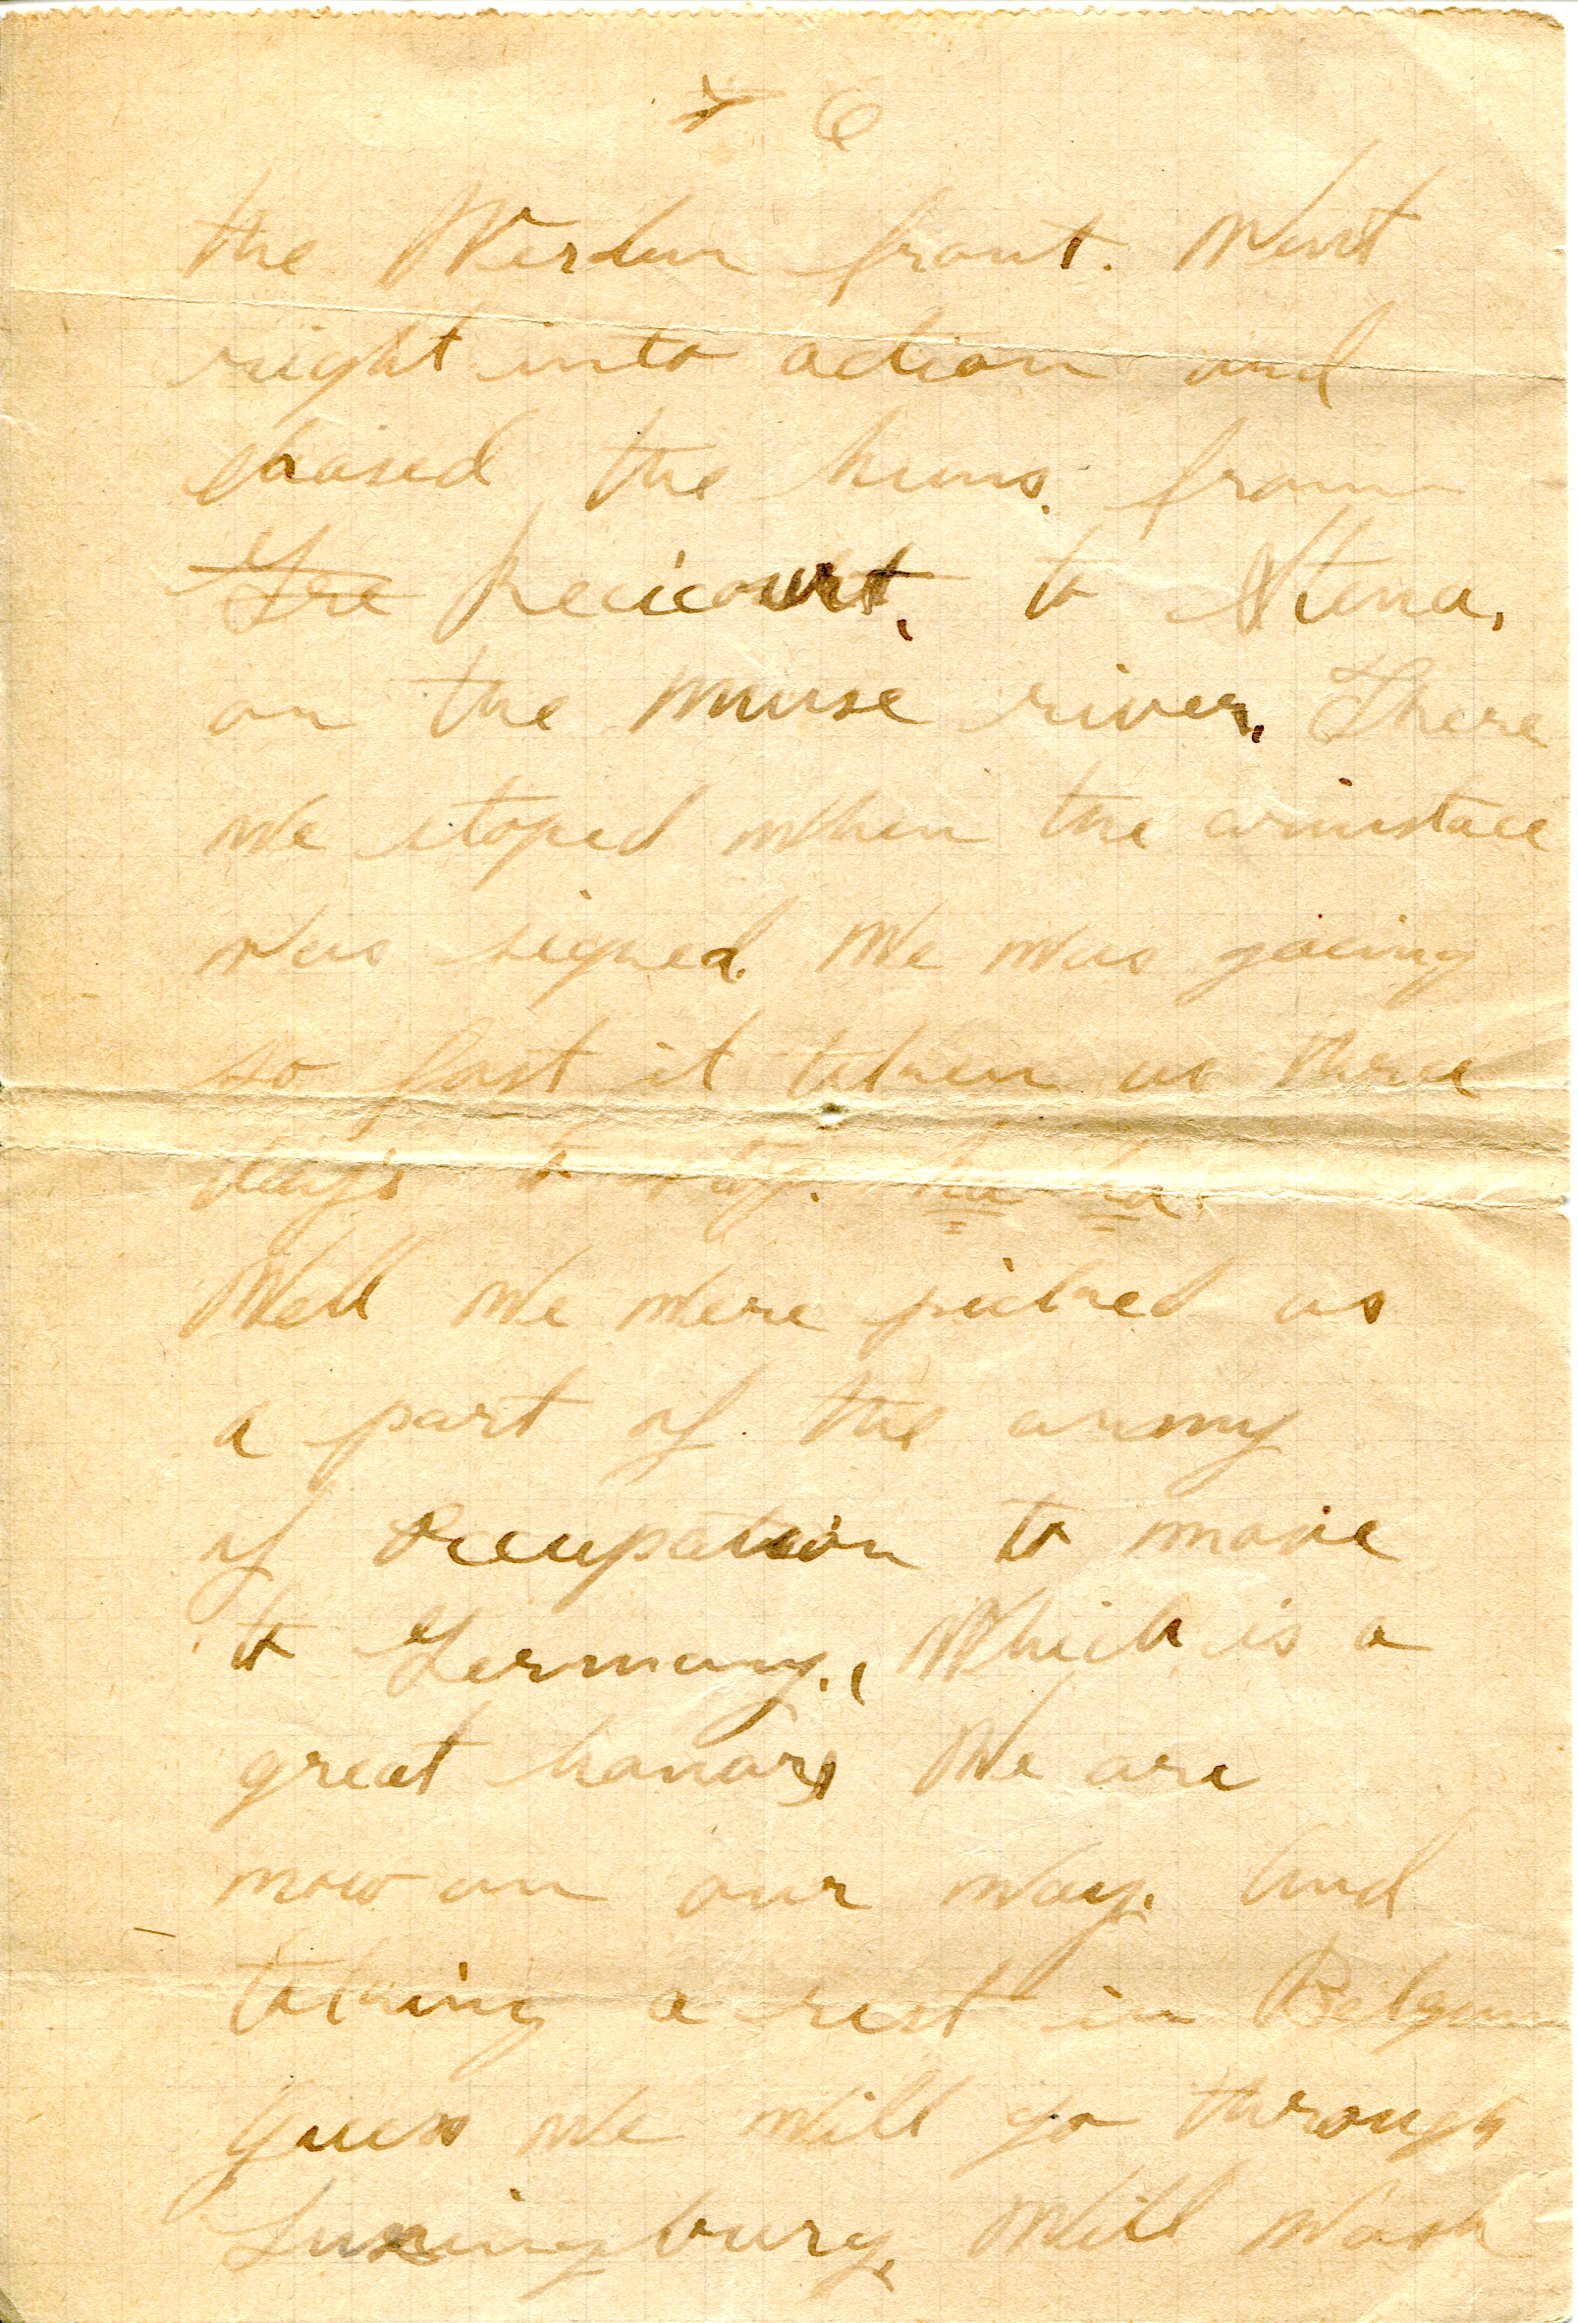 6
the Werdun front. Went
right into action and
chased the huns. from
Gre Recicourt, to Stena,
on the Muse river, There
we stoped when the armistace
was signed. We was goeing
so fast it taken us three
days to stop. ha ha.
Well we were picked as
a part of the army
of Occupation to move
to Germany., Which is a
great honor, We are
now on our way. And
taking a rest in Belgum
guess we will go through
Luxingburg, Will wash